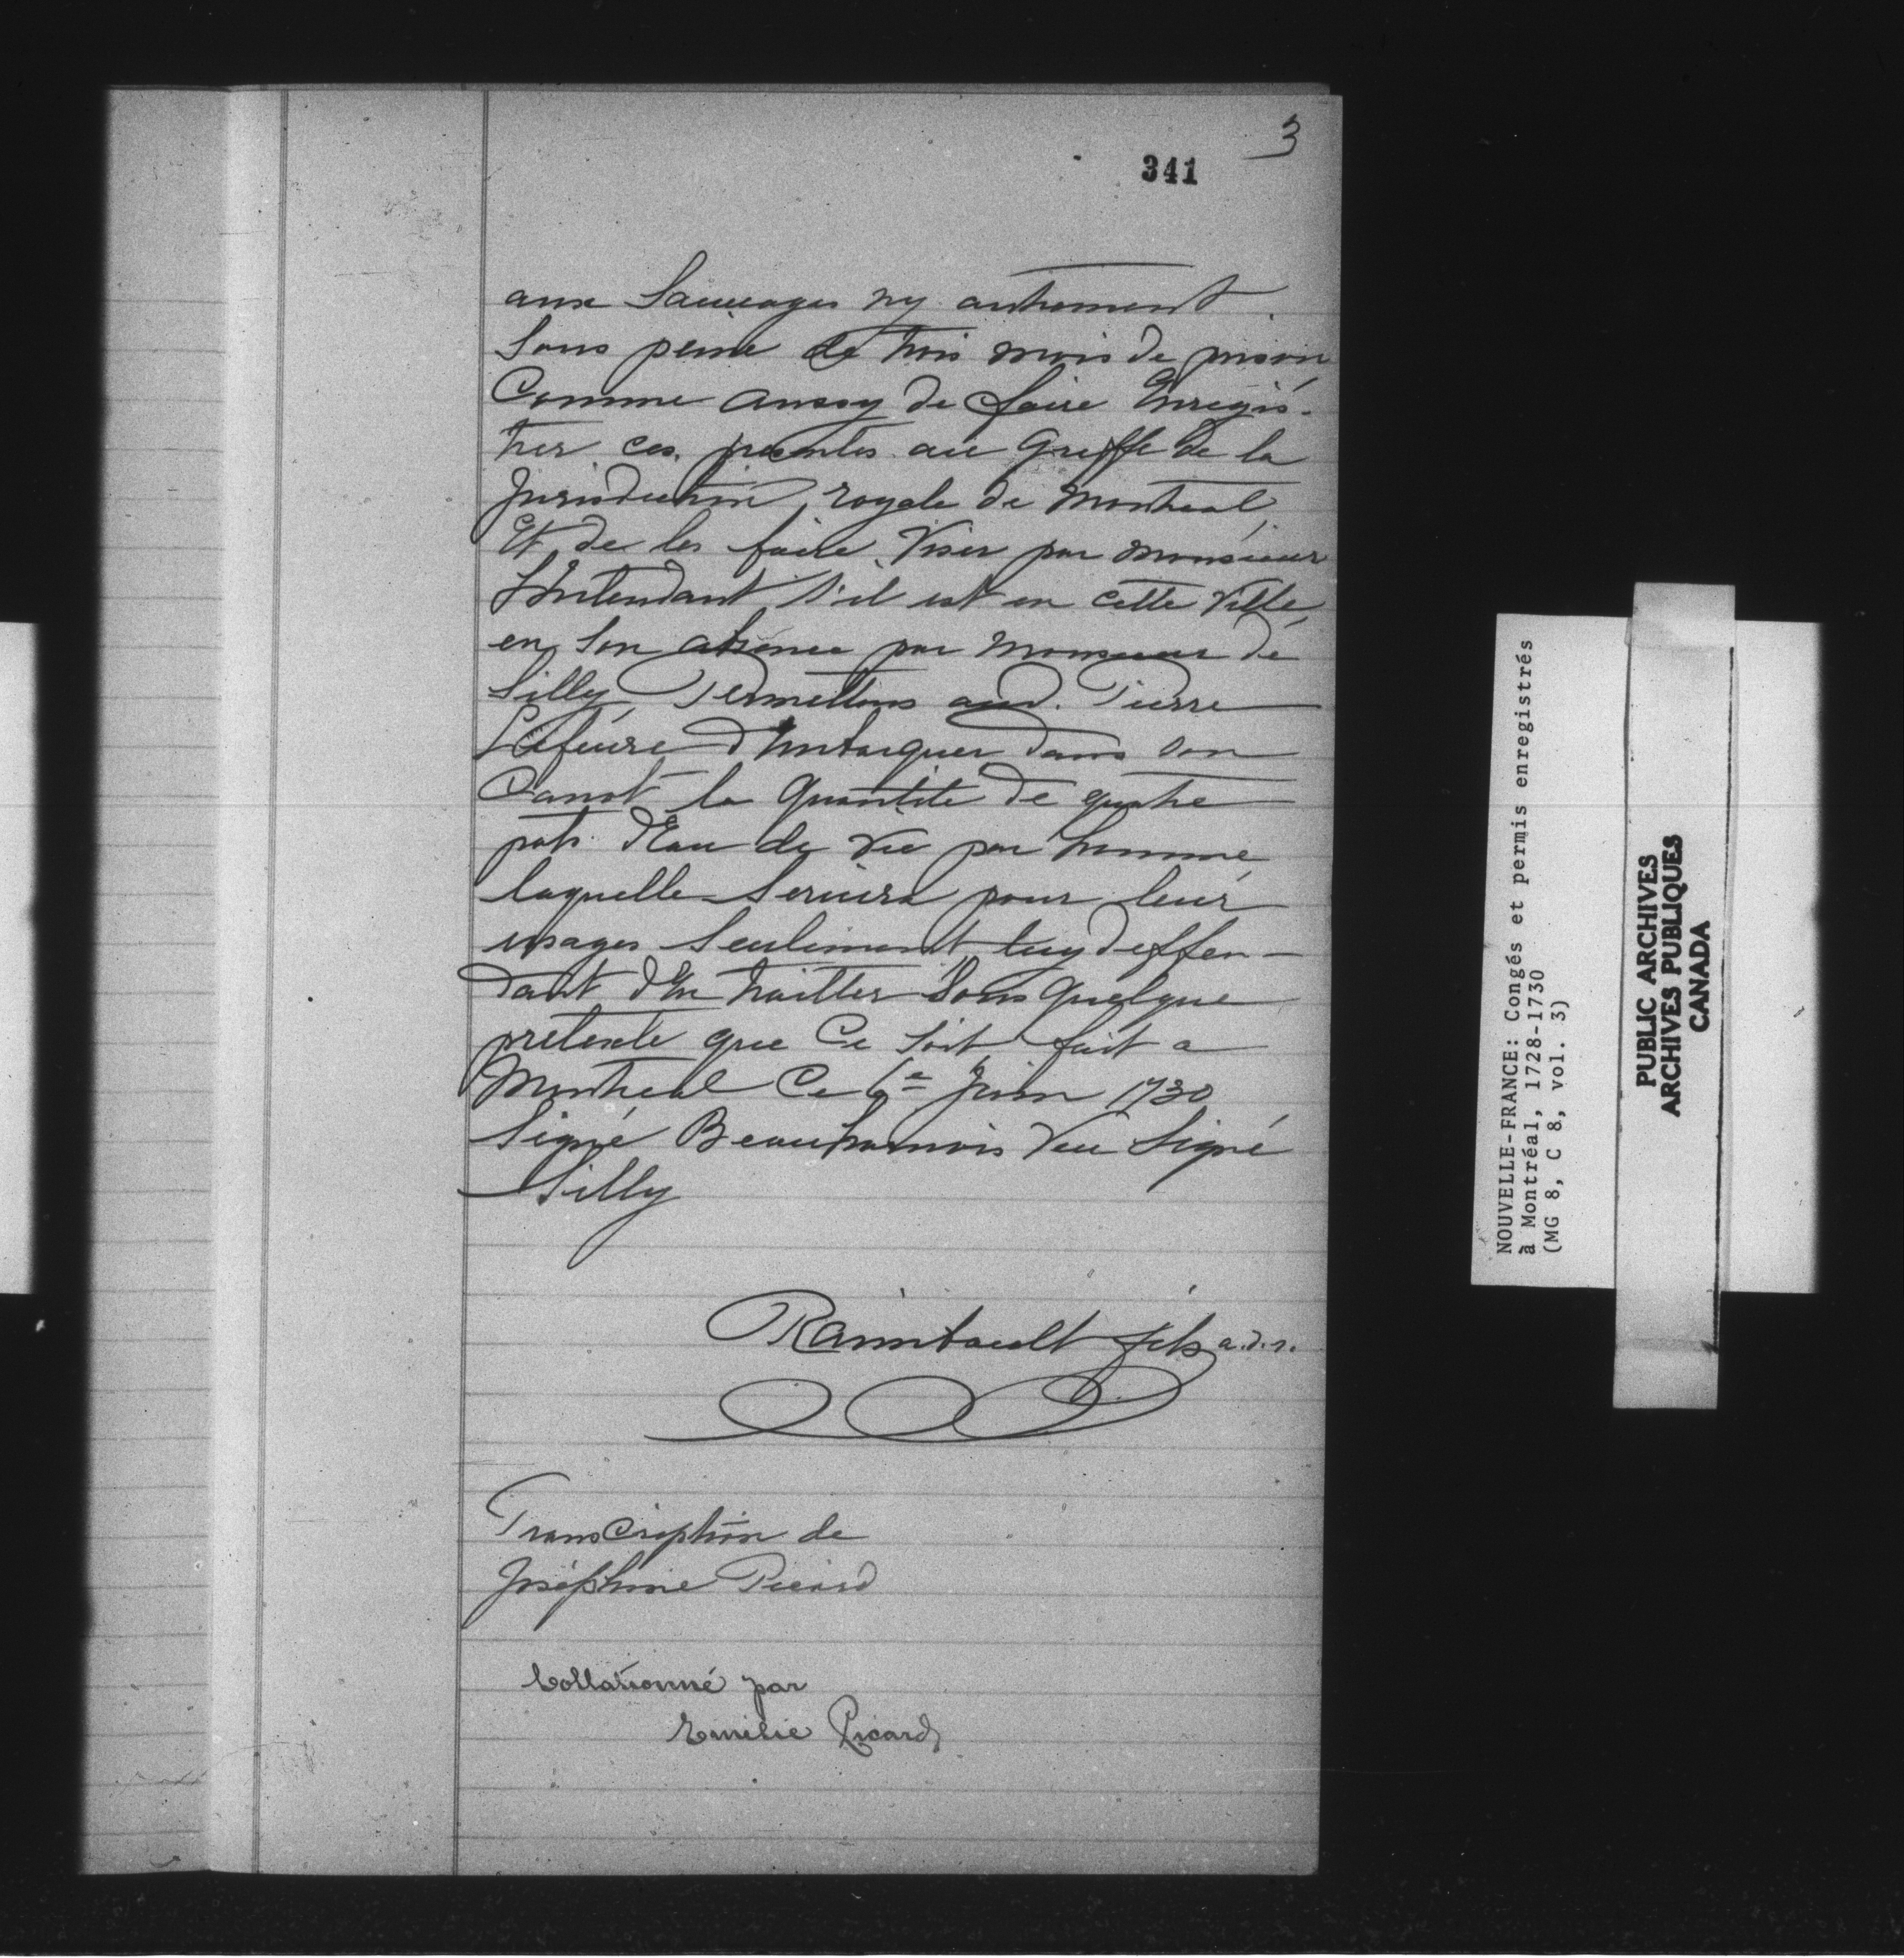 3
341
aux Sauuages ny autrement
Sous peine de trois mois de prison
Comme aussy de faire Enregis-
trer ces presentes au Greffe de la
Jurisdiction royale de Montreal,
Et de les faire Viser par Monsieur
L'Intendant s'il est en cette Ville,
en Son absence par Monsieur de
Silly, Permettons aud. Pierre
Lefeure d'Embarquer dans son
Canot la Quantité de quatre
pots d'Eau de Vie par homme
laquelle Seruira pour leur
usages Seulement luy deffen-
dant d'En traitter Sous quelque
pretexte que Ce soit fait a
Montreal Ce 6e Juin 1730
Signé Beauharnois Veu Signé
Silly
Raimbault fils a.d.n.
Transcription de
Joséphine Picard
Collationné par
Emilie Picard
NOUVELLE-FRANCE: Congés et permis enregistrés
à Montréal, 1728-1730
(MG 8, C 8, vol. 3)
PUBLIC ARCHIVES
ARCHIVES PUBLIQUES
CANADA